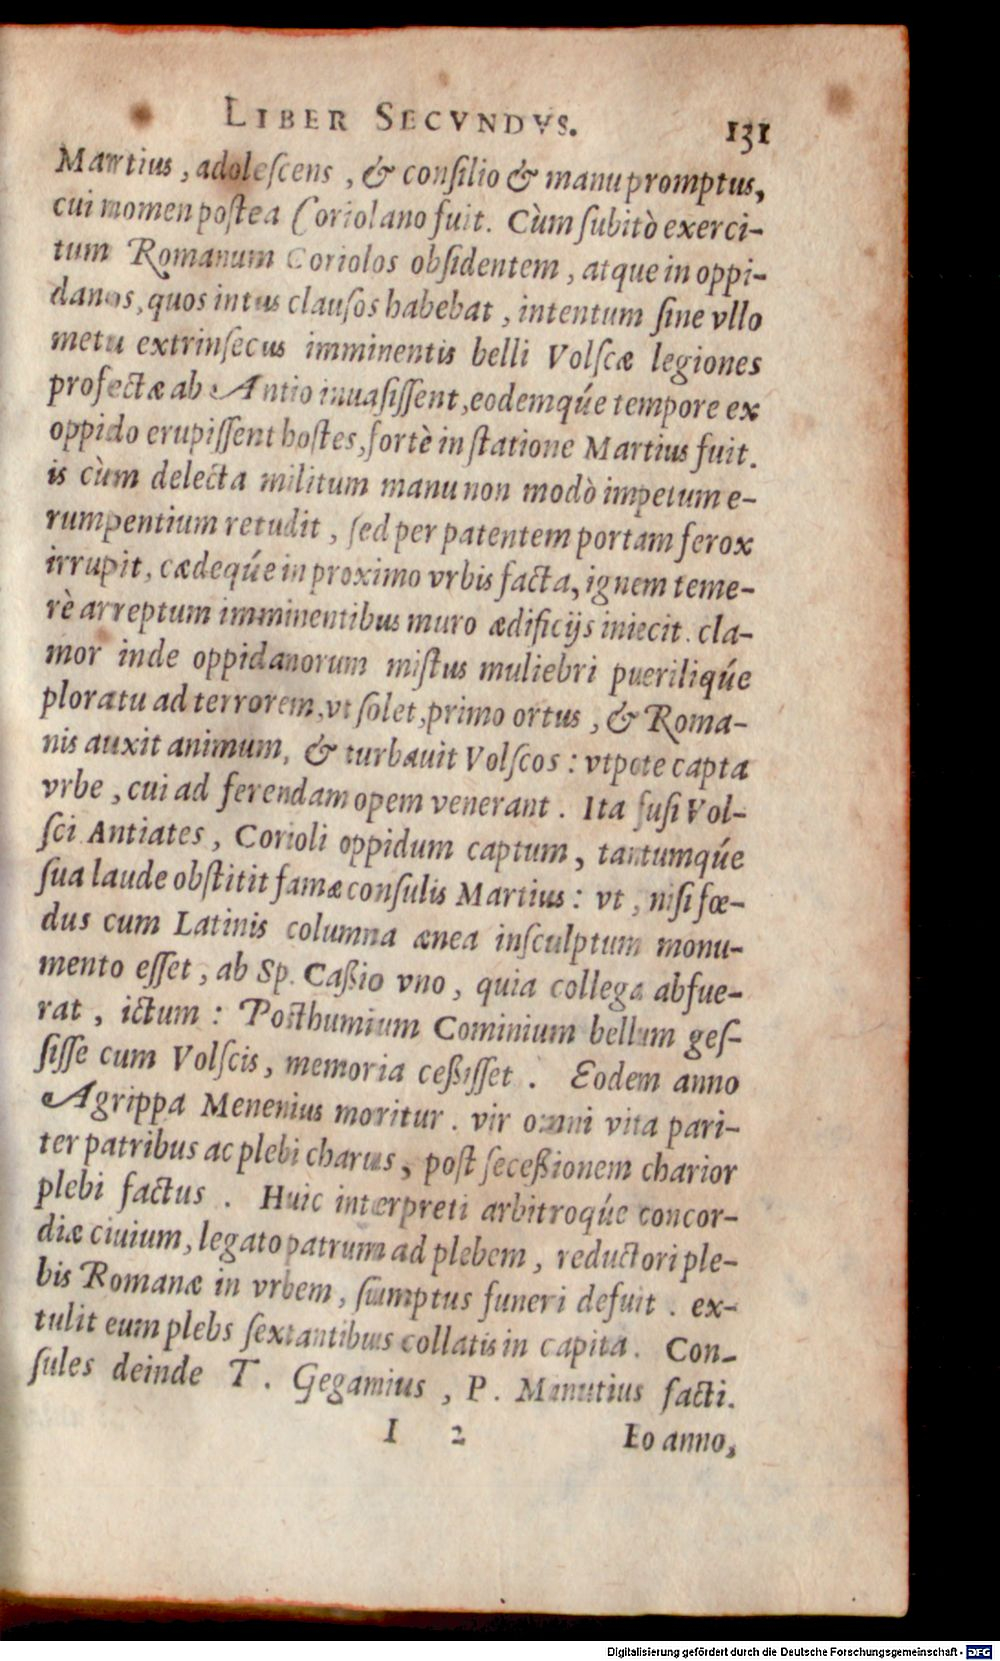 LIBER SECVNDVS. 131
Martius, adoleſcens, & conſilio & manu promptus,
cui nomen poſtea Coriolano fuit. Cùm ſubitò exerci-
tum Romanum Coriolos obſidentem, atque in oppi-
danos, quos intus clauſos habebat, intentum ſine vllo
metu extrinſecus imminentis belli Volſcæ legiones
profectæ ab Antio inuaſiſſent, eodemqúe tempore ex
oppido erupiſſent hoſtes, fortè in ſtatione Martius fuit.
is cùm delecta militum manu non modò impetum e-
rumpentium retudit, ſed per patentem portam ferox
irrupit, cædeqúe in proximo vrbis facta, ignem teme-
rè arreptum imminentibus muro ædificijs iniecit. cla-
mor inde oppidanorum miſtus muliebri puerilíqúe
ploratu ad terrorem, vt ſolet, primo ortus, & Roma-
nis auxit animum, & turbauit Volſcos: vtpote capta
vrbe, cui ad ferendam opem venerant. Ita fuſi Vol-
ſci Antiates, Corioli oppidum captum, tantumqúe
ſua laude obſtitit famæ conſulis Martius: vt, niſi fœ-
dus cum Latinis columna ænea inſculptum monu-
mento eſſet, ab Sp. Caßio vno, quia collega abfue-
rat, ictum: Poſthumium Cominium bellum geſ-
ſiſſe cum Volſcis, memoria ceßiſſet. Eodem anno
Agrippa Menenius moritur. vir omni vita pari-
ter patribus ac plebi charus, poſt ſeceßionem charior
plebi factus. Huic interpreti arbitroqúe concor-
diæ ciuium, legato patrum ad plebem, reductori ple-
bis Romanæ in vrbem, ſumptus funeri defuit. ex-
tulit eum plebs ſextantibus collatis in capita. Con-
ſules deinde T. Gegamius, P. Minutius facti.
I 2 Eo anno,
Digitalisierung gefördert durch die Deutsche Forschungsgemeinschaft - DFG